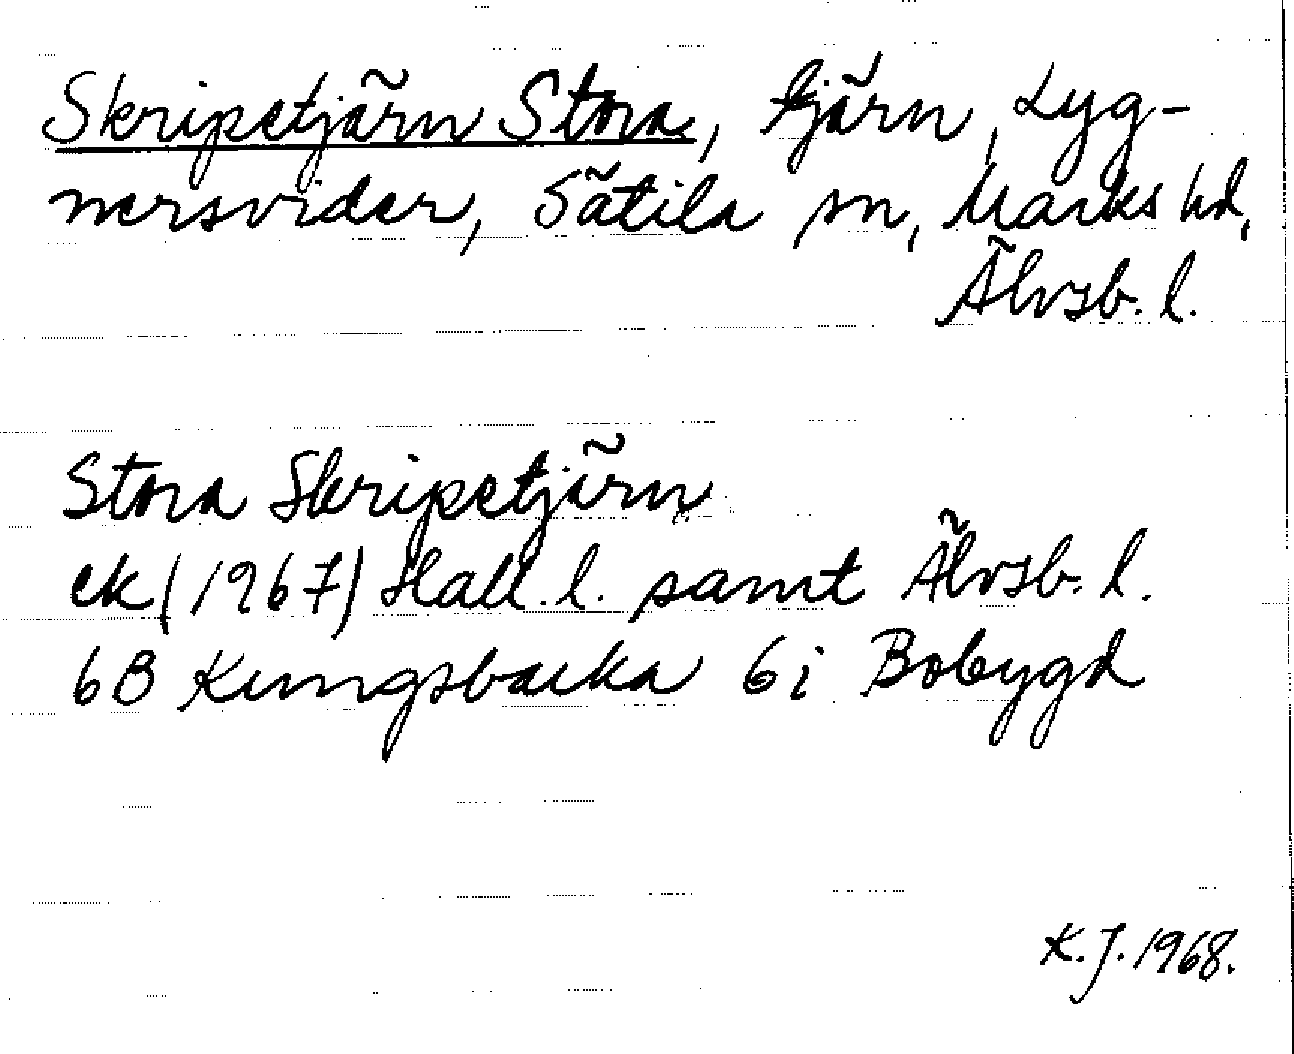 Skripetjärn Stora, tjärn, Lyg-
nersvider, Sätila sn, Marks hd,
Älvsb. l.
Stora Skripetjärn
ek (1967) Hall. l. samt Älvsb. l.
6B Kungsbacka 6i Bobygd
K.J. 1968.